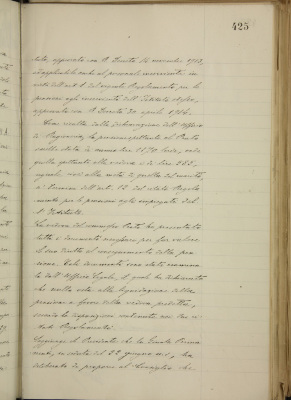 425
dato, approvato con R. Decreto 14 novembre 1903,
è applicabile anche al personale
dell'art. 1 del Regolamento, per le
pensioni agli dell'Istituto
approvato con R. Decreto 30 aprile 1906.
Come risulta dalla dell'Ufficio
di Ragioneria, la pensione spettante al Prato
sarebbe stata in annue lire 1170 lorde, onde
quella spettante alla vedova è di lire 585,
uguale cioè alla metà di quella del marito,
a termini dell'art. 12 del citato Regola
mento per le pensioni agli impiegati del
l'Istituto.
La vedova del Prato ha presentato
tutti i documenti necessari per far valere
il suo diritto al conseguimento della pen
sione. Tali documenti sono stati esamina
ti dall'Ufficio Legale, il quale ha dichiarato
che nulla osta alla liquidazione della
pensione a favore della vedova predetta,
secondo le disposizioni contenute nei due ci
tati Regolamenti.
Soggiunge il Presidente che la Giunta Perma
nente, in seduta del 22 giugno ha
deliberato di proporre al Consiglio che